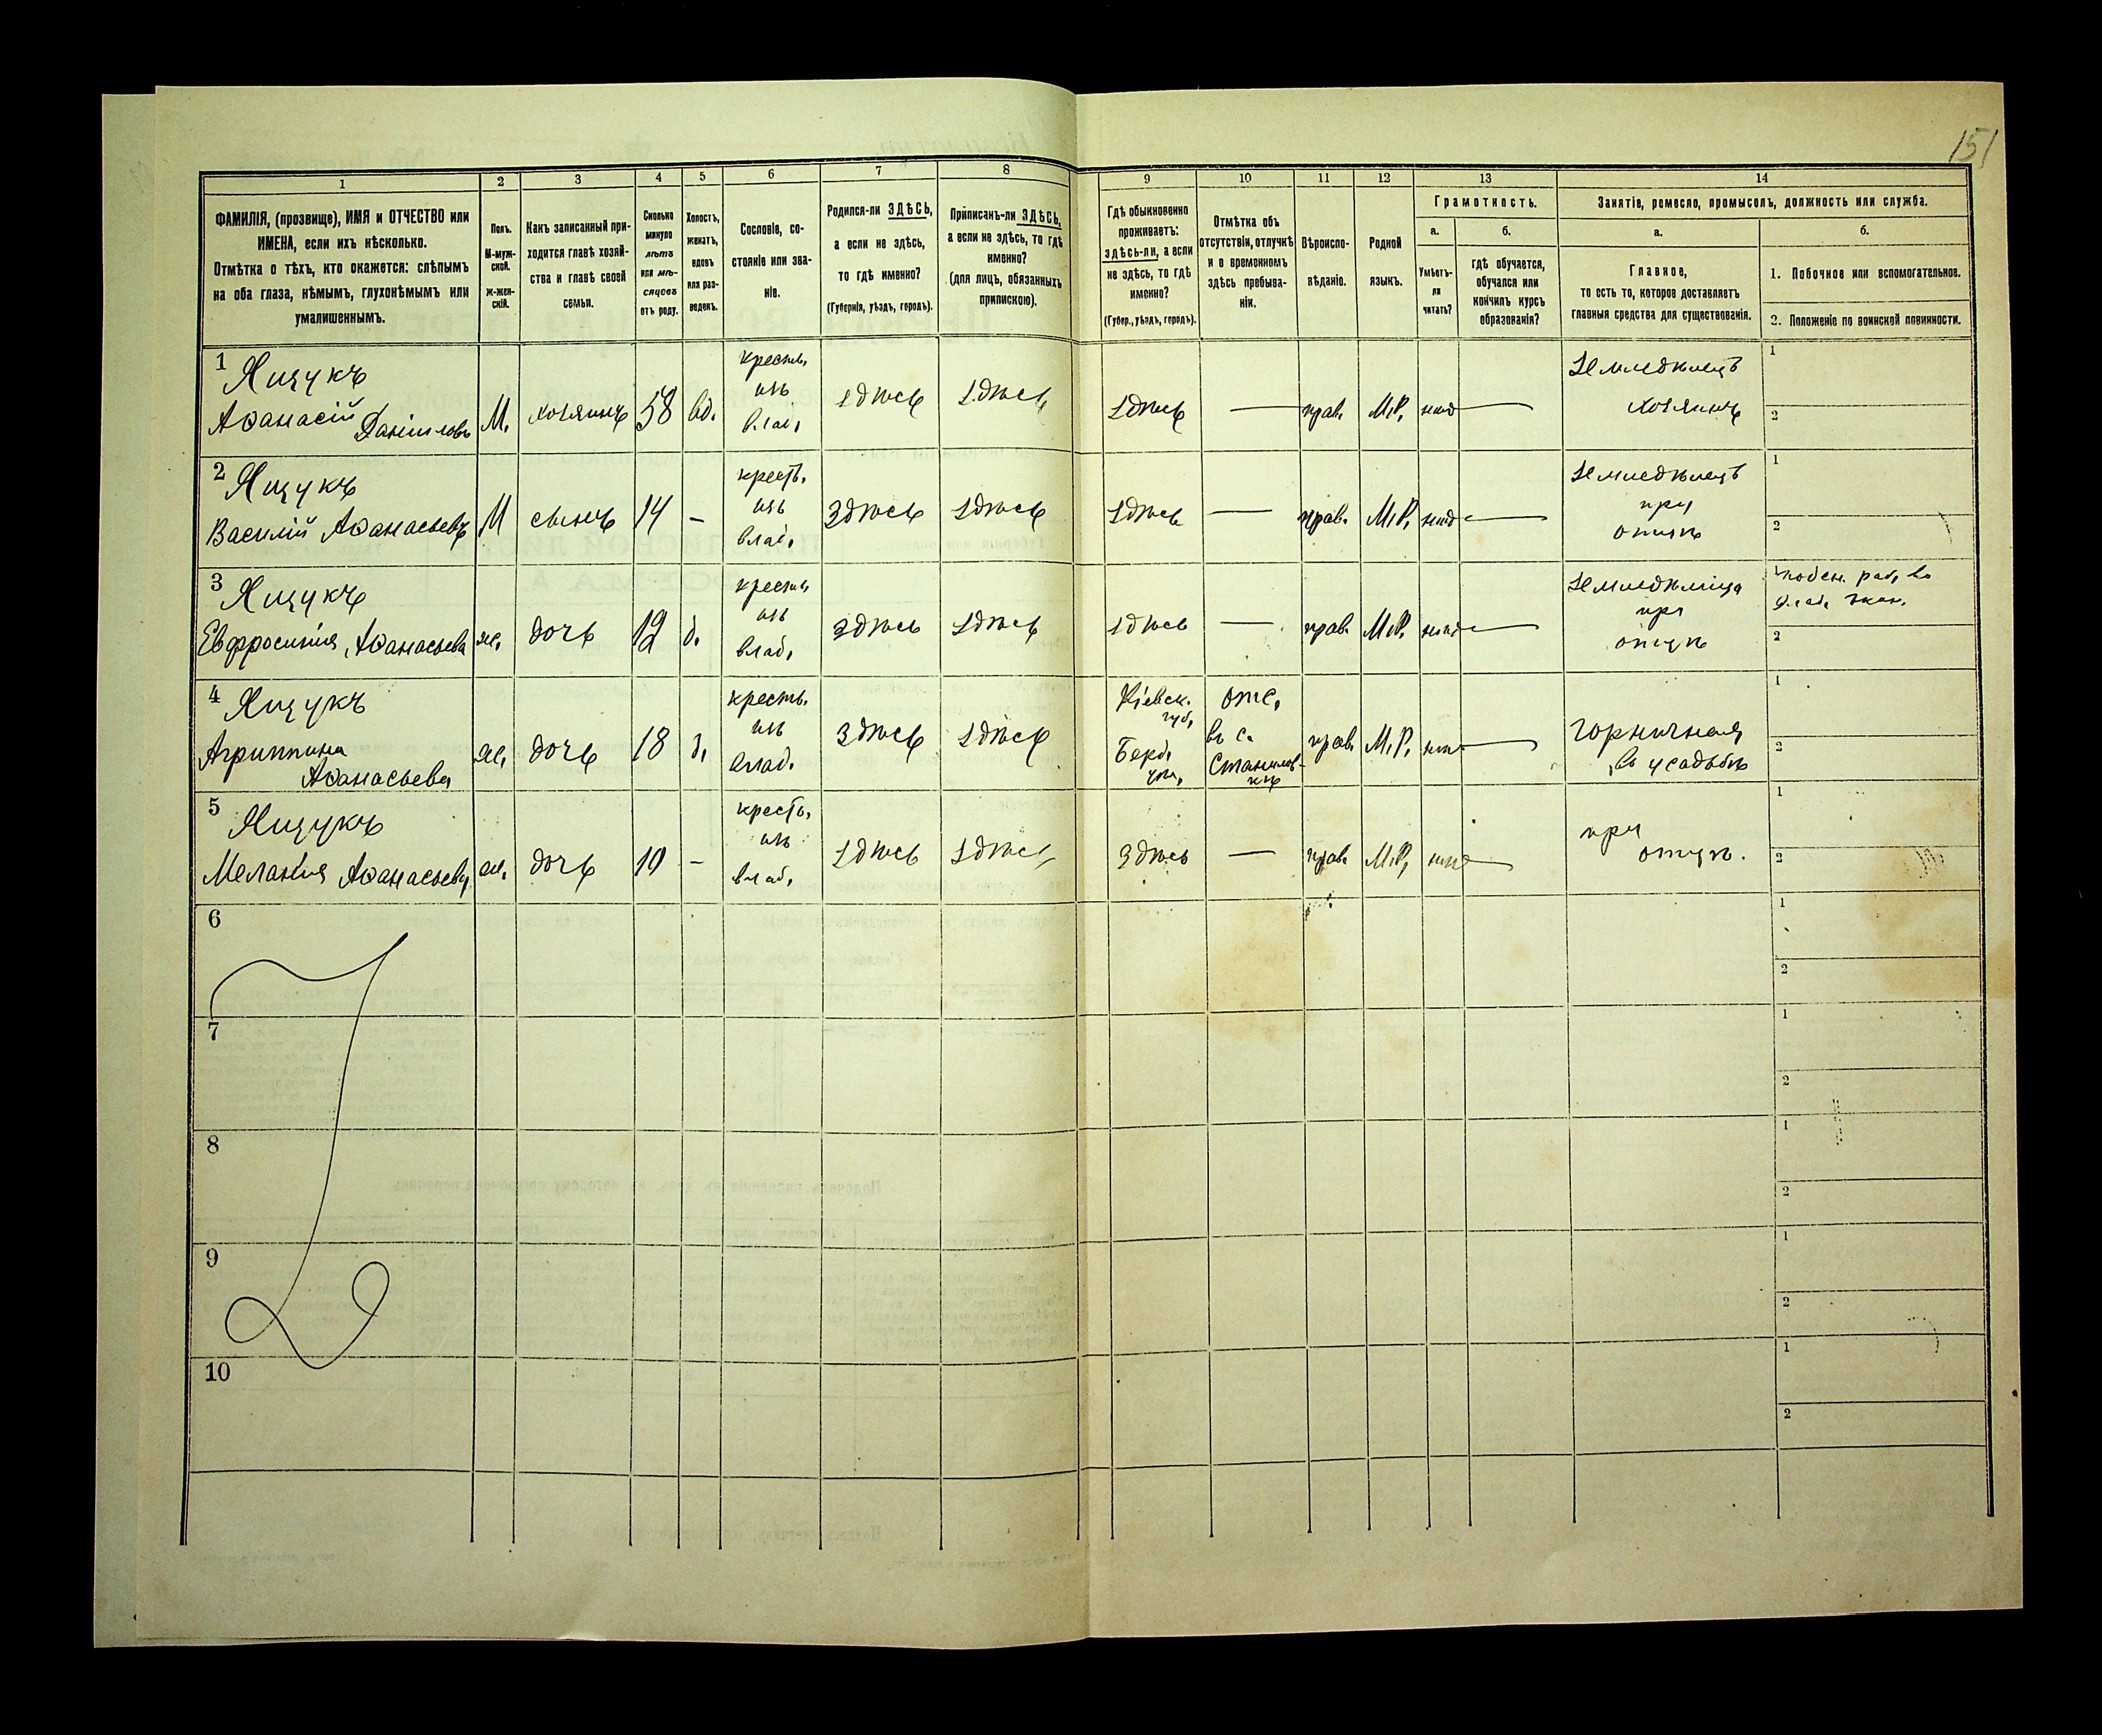 151
1
2
3
4
5
6
7
8
9
10
11
12
13
14
ФАМИЛІЯ, (прозвище), ИМЯ и ОТЧЕСТВО или
ИМЕНА, если ихъ нѣсколько.
Отмѣтка о тѣхъ, кто окажется: слѣпымъ
на оба глаза, нѣмымъ, глухонѣмымъ или
умалишеннымъ.
Полъ.
М-муж-
ской.
ж-жен-
скій.
Какъ записанный при-
ходится главѣ хозяй-
ства и главѣ своей
семьи.
Сколько
минуло
лѣтъ
или мѣ-
сяцевъ
отъ роду.
Холостъ,
женатъ,
вдовъ
или раз-
веденъ.
Сословіе, со-
стояніе или зва-
ніе.
Родился-ли ЗДѢСЬ,
а если не здѣсь,
то гдѣ именно?
(Губернія, уѣздъ, городъ).
Приписанъ-ли ЗДѢСЬ,
а если не здѣсь, то гдѣ
именно?
(для лицъ, обязанныхъ
припискою).
Гдѣ обыкновенно
проживаетъ:
здѣсь-ли, а если
не здѣсь, то гдѣ
именно?
(Губер., уѣздъ, городъ).
Отмѣтка объ
отсутствіи, отлучкѣ
и о временномъ
здѣсь пребыва-
ніи.
Вѣроиспо-
вѣданіе.
Родной
языкъ.
Грамотность.
а.
Умѣетъ-
ли
читать?
б.
гдѣ обучается,
обучался или
кончилъ курсъ
образованія?
Занятіе, ремесло, промыселъ, должность или служба.
а.
Главное,
то есть то, которое доставляетъ
главныя средства для существованія.
б.
1. Побочное или вспомогательное.
2. Положеніе по воинской повинности.
1 Ящукъ
Аѳанасій Даниловъ
М. хозяинъ 58 вд.
крестья,
изъ
влад.
здѣсь здѣсь здѣсь — прав. М.Р. нѣтъ —
Земледѣлецъ
хозяинъ
1
2
2 Ящукъ
Василій Аѳанасьевъ
М сынъ 14 –
крест.
изъ
влад.
здѣсь здѣсь здѣсь — прав. М.Р. нѣтъ —
Земледѣлецъ
при
отцѣ
1
2
3 Ящукъ
Евфросинія Аѳанасьева
ж. дочь 19 д.
крестья
изъ
влад.
здѣсь здѣсь здѣсь — прав. М.Р. нѣтъ —
Земледѣлица
при
отцѣ
1 поден. раб. въ
влад. экон.
2
4 Ящукъ
Агриппина
Аѳанасьева
ж. дочь 18 д.
кресть.
изъ
влад.
здѣсь здѣсь
Кіевск.
губ,
Берд.
уѣз.
отс.
въ с.
прав. М.Р. нѣт. —
горничная
въ усадьбѣ
1
2
5 Ящукъ
Меланія Аѳанасьева
ж. дочь 10 –
кресть.
изъ
влад.
здѣсь здѣсь здѣсь — прав. М.Р. нѣтъ —
при
отцѣ.
1
2
6
1
2
7
1
2
8
1
2
9
1
2
10
1
2